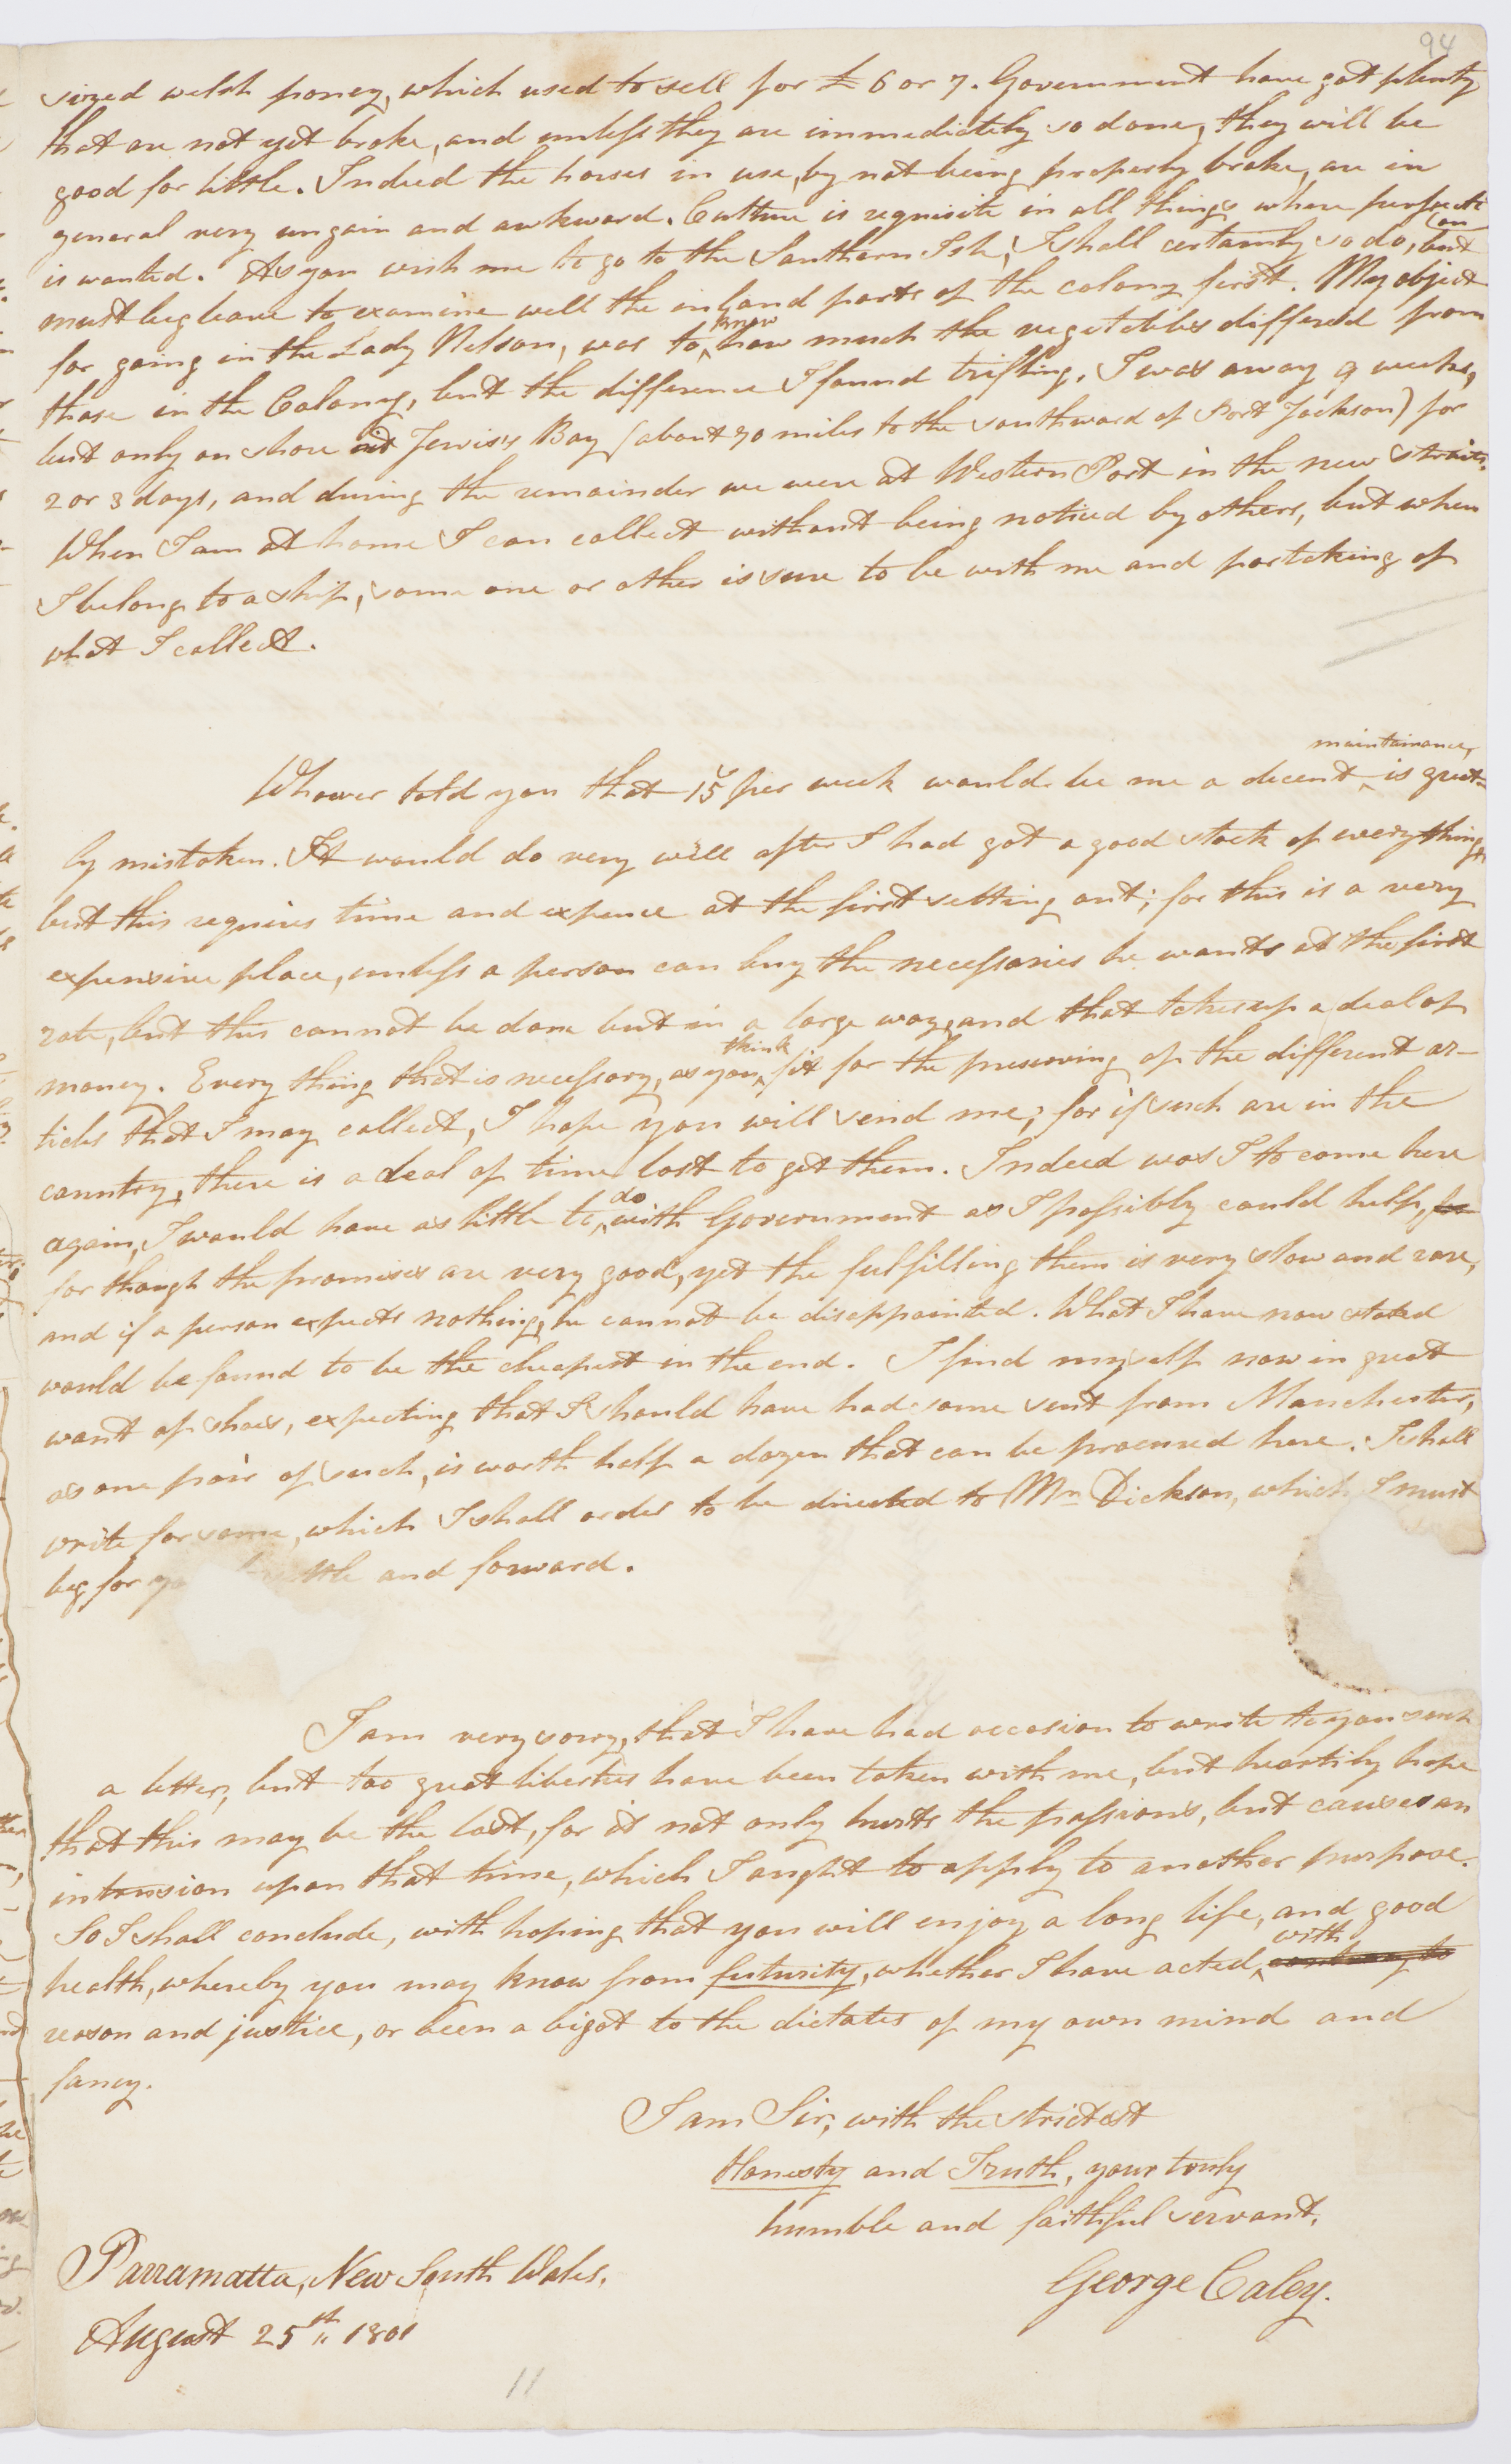 94
sized welsh poney, which used to sell for £ 6 or 7. Government have got plenty
that are not yet broke, and unless they are immediately so done, they will be
good for little. Indeed the horses in use, by not being properly broke, are in
general very ungain and awkward. Culture is requisite in all things where perfecti
on
is wanted. As you wish me to go to the Southern Isle, I shall certainly so do, but
must beg leave to examine well the inland parts of the colony first. My object
know
for going in the Lady Nelson, was to ‸ how much the vegetables differed from
those in the Colony, but the difference I found trifling. I was away 9 weeks,
but only on shore at Jervis's Bay (about 90 miles to the southward of Port Jackson) for
2 or 3 days, and during the remainder we were at Western Port in the new straits.
When I am at home I can collect without being noticed by others, but when
I belong to a ship, some one or other is sure to be with me and partaking of
what I collect.
maintainance,
Whower told you that 15s per week would be me a decent ‸ is great-
ly mistaken. It would do very well after I had got a good stock of every thing,
but this requires time and expence at the first setting out; for this is a very
expensive place, unless a person can buy the necessaries he wants at the first
rate, but this cannot be done but in a large way, and that takes up a deal of
think
money. Every thing that is necessary, as you ‸ fit for the preserving of the different ar-
ticles that I may collect, I hope you will send me; for if such are in the
country, there is a deal of time lost to get them. Indeed was I to come here
do
again, I would have as little to ‸ with Government as I possibly could help, for
for though the promises are very good, yet the fulfilling them is very slow and rare,
and if a person expects nothing, he cannot be disappointed. What I have now stated
would be found to be the cheapest in the end. I find myself now in great
want of shoes, expecting that I should have had some sent from Manchester,
as one pair of such, is worth half a dozen that can be procured here. I shall
write for some, which I shall order to be directed to Mrs Dickson, which I must
beg for and forward.
I am very sorry, that I have had occasion to write to you such
a letter; but too great liberties have been taken with me, but heartily hope
that this may be the last, for it not only hurts the passions, but causes an
intrusion upon that time, which I ought to apply to another purpose.
So I shall conclude, with hoping that you will enjoy a long life, and good
with
health, whereby you may know from futurity, whether I have acted ‸ contrary to
reason and justice, or been a bigot to the dictates of my own mind and
fancy.
I am Sir, with the strictest
Honesty and Truth, your truly
humble and faithful servant,
George Caley.
Parramatta, New South Wales.
August 25st 1801
11